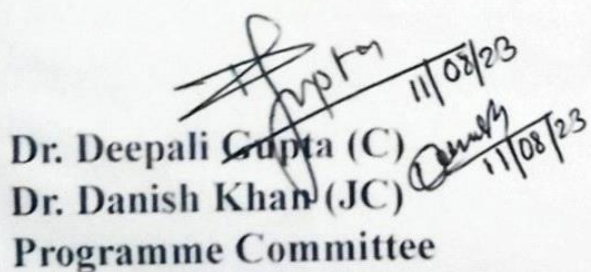 Gupta
11/08/23
Dr. Deepali Gupta (C)
11/08/23
Dr. Danish Khan (JC)
Programme Committee